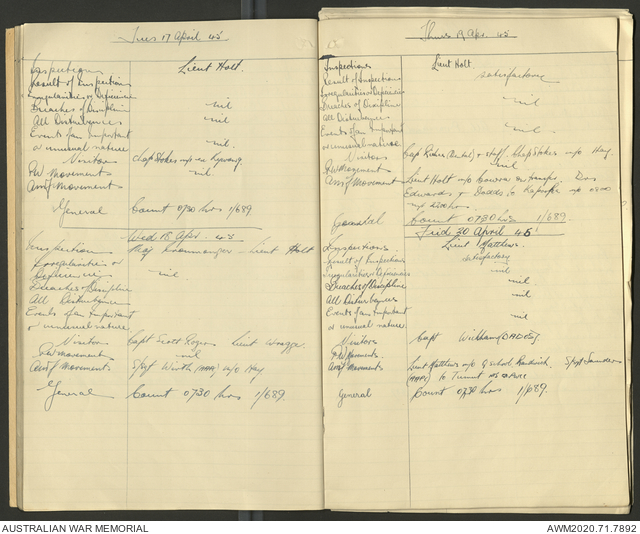 Tues 17 April 45
Inspections Lieut Holt.
Result of Inspections
Irregularities or Deficiencies
Breaches of Discipline nil
All Disturbances nil
Events of an Important
or unusual nature nil.
Visitors Chap Stokes m/o
P.W Movements nil.
Army Movements
General Count 0730 hrs 1/689
Wed 18 Apr. 45
Inspections Maj Lieut Holt
Irregularities or
Deficiencies nil
Breaches of Discipline
All Disturbances
Events of an Important
or unusual nature
Visitors Capt Scott Rogers Lieut Wragge.
P.W movements nil
Army Movements S/Sgt Wirth m/o Hay
General Count 0730 hrs 1/689.
Thurs 19 Apr. 45
Inspections Lieut Holt
Result of Inspections satisfactory
Irregularities or Deficiencies
Breaches of Discipline nil
All Disturbances
Events of an Important nil
or unusual nature
Visitors Capt (Dental) & staff. Chap Stokes m/o Hay.
P.W Movements nil
Army Movements Lieut Holt m/o Cowra on transfer. Drs
Edwards & to m/o 0800
2200 hrs
General Count 0730 hrs 1/689
Frid 20 April 45
Inspections Lieut Matthews.
Result of Inspections satisfactory
Irregularities or Deficiencies nil
Breaches of Discipline nil.
All Disturbances nil
Events of an Important
or unusual nature nil.
Visitors Capt
P.W Movements.
Army Movements Lieut Matthews m/o School Randwick. S/Sgt Saunders
to Tumut
General Count 0730 hrs 1/689.
AUSTRALIAN WAR MEMORIAL
AWM2020.71.7892